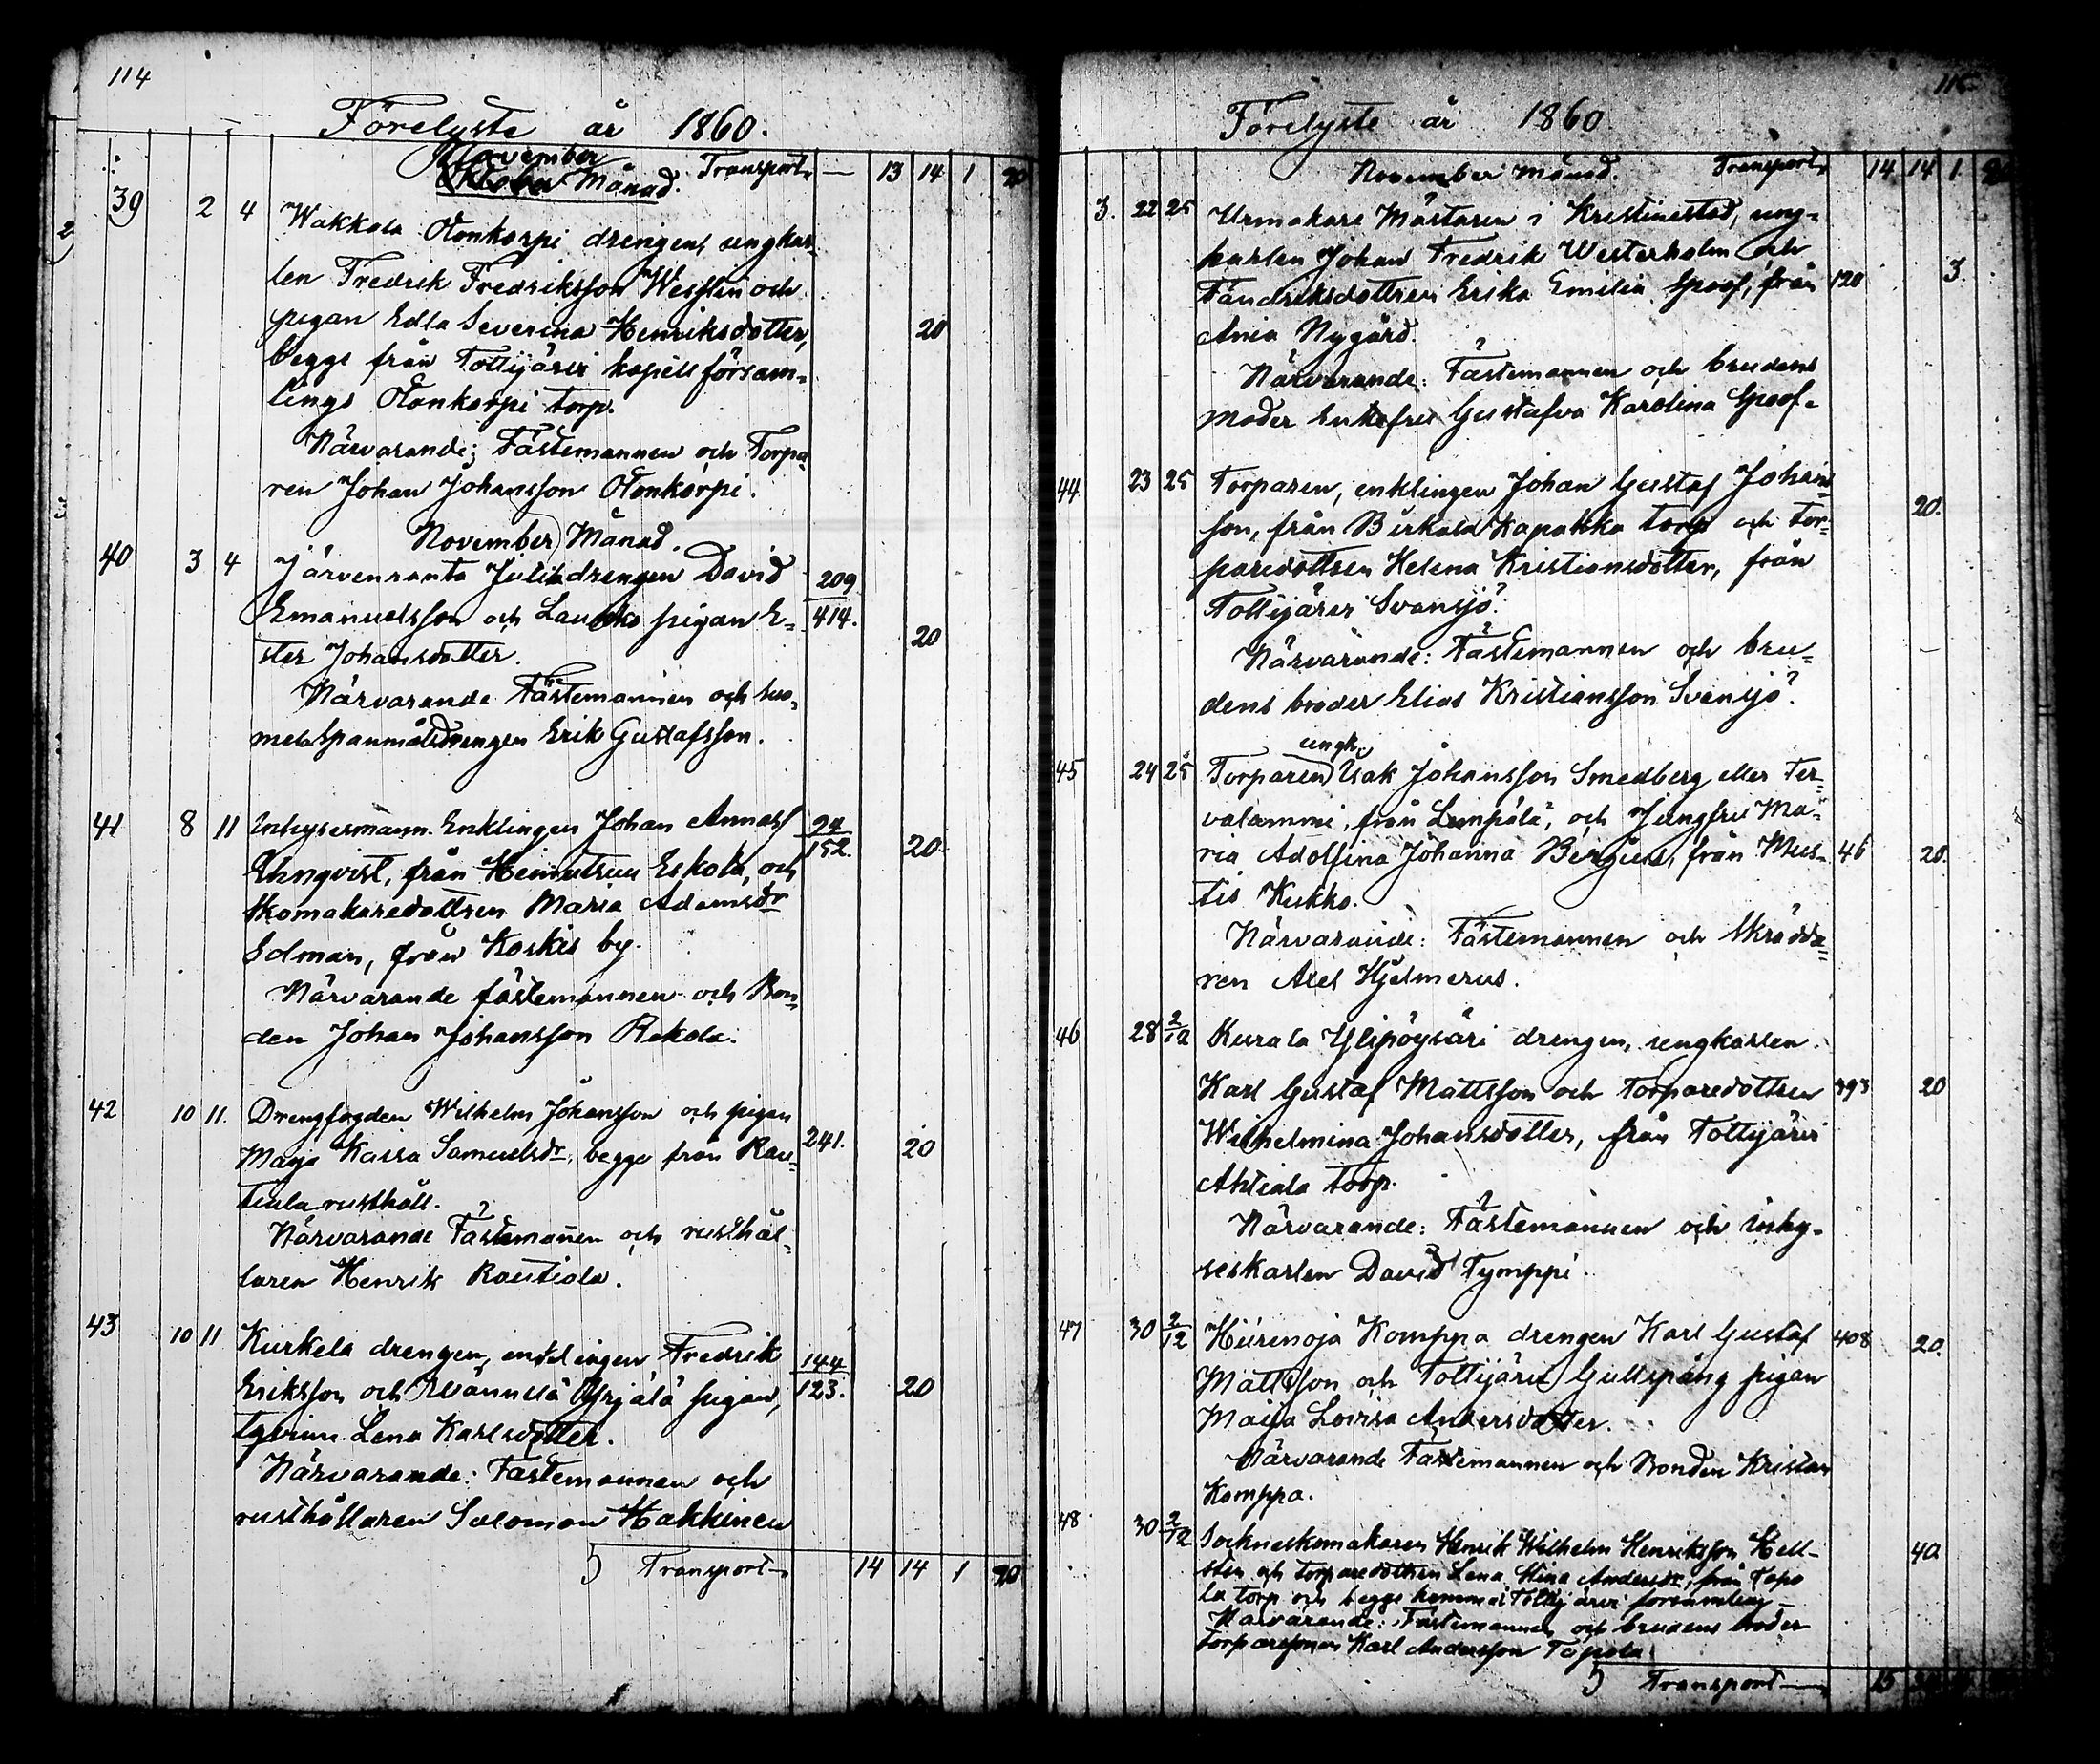 114
Förelyste år 1860.
November
Oktober Månad. Transport — 13 14 1 20
39 2 4 Wakkala Otonkorpi drengen, ungkar-
len Fredrik Fredriksson Wesslin och
pigan Edla Severina Henriksdotter, 20
begge från Tottijärvi kapellförsam-
lings Otonkorpi torp.
Närvarande; Fästemannen och Torpa-
ren Johan Johansson Otonkorpi.
November Månad.
40 3 4 Järvenranta drengen David 209
Emanuelsson och pigan E- 414.
ster Johansdotter. 20
Närvarande Fästemannen och
Erik Gustafsson.
41 8 11 Inhysesmann. Enklingen Johan 94
från Eskola, och 152. 20
Skomakaredottren Maria Adamsdr
Edman, från Koskis by.
Närvarande fästemannen och Bon-
den Johan Johansson Rekola.
42 10 11. Drengfogden Wilhelm Johansson och pigan
Maija Kaisa Samuelsdr, begge från Rau- 241. 20
tiala rusthåll.
Närvarande Fästemannen och rusthål-
laren Henrik Rautiola.
43 10 11 Kurkela drengen, enklingen Fredrik 144
Eriksson och Yrjälä pigan, 123. 20
Lena Karlsdotter.
Närvarande: Fästemannen och
rusthållaren Salomon Hakkinen
5 Transport 14 14 1 20
115
Förelyste år 1860
November Månad. Transport 14 14 1
3. 22 25 Urmakare Mästaren i Kristinestad, ung-
karlen Johan Fredrik Westerholm och
Fändriksdottren Erika Emilia Spoof, från 120 3.
Ania Nygård.
Närvarande: Fästemannen och brudens
moder Enkefru Gustafva Karolina Spoof.
44 23 25 Torparen, enklingen Johan Gustaf Johans-
son, från Birkala Kapakka torp och Tor- 20.
paredottren Helena Kristiansdotter, från
Tottijärvi Svansjö.
Närvarande: Fästemannen och bru-
dens broder Elias Kristiansson Svansjö.
ungk.
45 24 25 Torparen Isak Johansson Smedberg eller Ter-
valammi, från Lempälä, och Jungfru Ma-
ria Adolfina Johanna Bergius, från Mus- 46 20.
tis Kukko.
Närvarande: Fästemannen och Skrädda-
ren Axel Hjelmerus.
46 28 2/12 Kurala Ylipöysäri drengen, ungkarlen
Karl Gustaf Mattsson och Torparedottren 393 20
Wilhelmina Johansdotter, från Tottijärvi
Ahtiala torp.
Närvarande: Fästemannen och inhy-
seskarlen David Tymppi.
47 30 2/12 Komppa drengen Karl Gustaf 408 20.
Mattsson och Tottijärvi Gullspång pigan
Maija Lovisa Andersdotter.
Närvarande Fästemannen och Bonden Kristian
Komppa.
48 30 2/12 Sockneskomakaren Henrik Wilhelm Henriksson Hell-
sten och torparedottren Lena Stina Andersdr, från Tapo- 40
la torp och begge hemma i Tottijärvi församling
Närvarande: Fästemannen och brudens broder
Torparesonen Karl Andersson Tapola
5 Transport 15